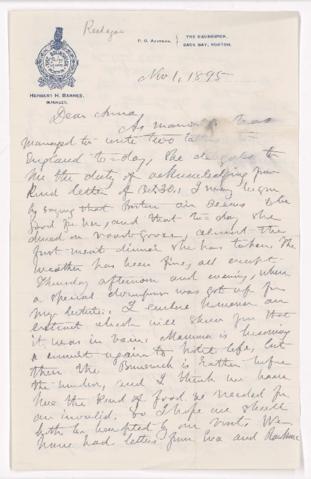 P. O. Address,
THE BRUNSWICK,
BACK BAY, BOSTON.
HERBERT H. BARNES,
MANAGER.
Nov 1, 1895
Dear Anna,
As mamma has
managed to write two
England to-day, she
to me the duty of acknowledging your
kind letter of I may begin
by saying that Boston air seems to be
good for her, and that to-day she
dined on roast goose, almost the
first meat dinner she has taken. The
weather has been fine, all except
Thursday afternoon and evening, when
a special downpour was got up for
my lecture. I enclose however an
extract which will show you that
it was in vain. Mamma is becoming
again to hotel life, but
then the Brunswick is rather before
the and I think we have
here the kind of food we needed for
an invalid. So I hope we shall
both be benefited by our visit. We
have had letters from and